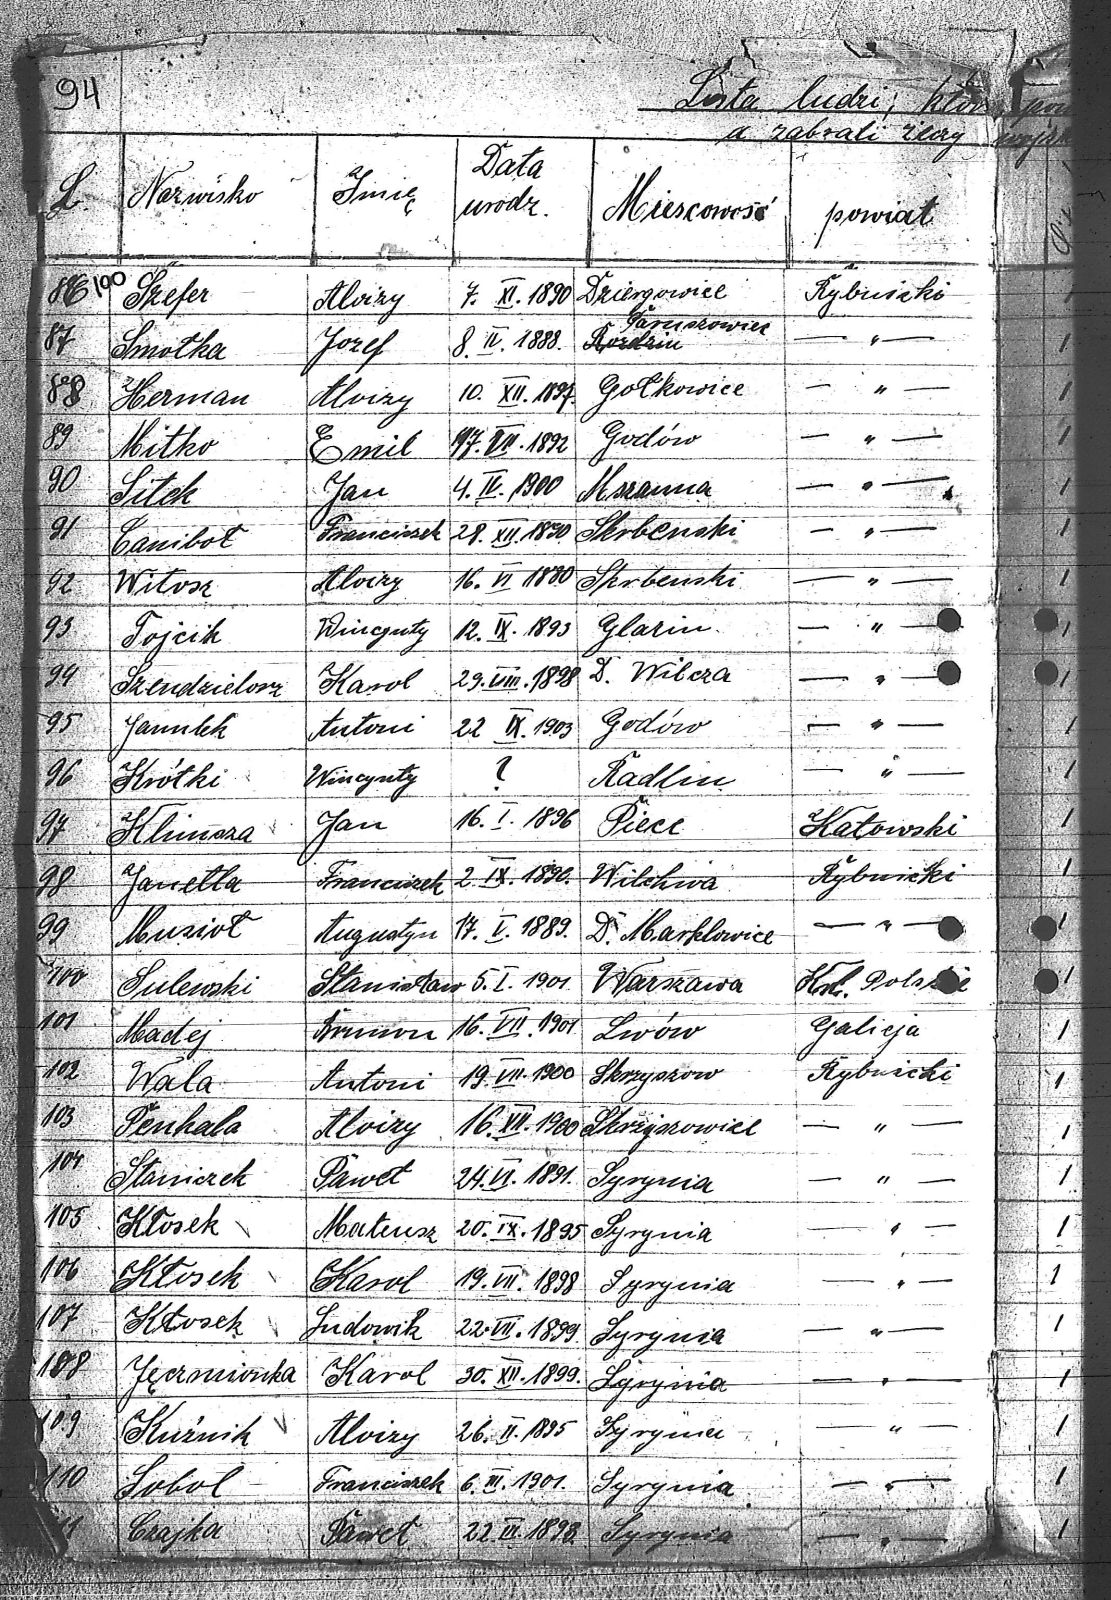 94 Lista ludzi,
a zabrali rzeczy
L. Nazwisko Imię Data urodz. Miescowość powiat
86 100 Szefer Aloizy 7. XI. 1890 Dziergowice Rybnicki
Paruszowiec
87 Smolka Jozef 8. II. 1888. Rozdzin — " —
88 Herman Aloizy 10. XII. 1897. Gołkowice — " —
89 Mitko Emil 17. VII. 1892 Godów — " —
90 Sitek Jan 4. IV. 1900 Mszanna — " —
91 Canibol Franciszek 28. XII. 1890 Skrbenski — " —
92 Witosz Aloizy 16. VI 1880 Skrbenski — " —
93 Tojcik Wincynty 12. IX. 1893 Glazin — " —
94 Szendzielorz Karol 29. VIII. 1898 D. Wilcza — " —
95 Janulek Antoni 22 IX. 1903 Godów — " —
96 Krótki Wincynty ? Radlin — " —
97 Klimsza Jan 16. I. 1896 Piece Katowski
98 Janetta Franciszek 2. IX. 1890. Wilchwa Rybnicki
99 Musioł Augustyn 17. V. 1889. D. Marklowice — " —
100 Sulewski Stanisław 5. I. 1901 Warszawa Kr. Polskie
101 Madej Brunon 16. VII. 1901 Lwów Galicja
102 Wala Antoni 19. VII. 1900 Skrzyszow Rybnicki
103 Penkala Aloizy 16. XII. 1900 Skrziszowice — " —
104 Staniczek Paweł 24. VI. 1891. Syrynia — " —
105 Kłosek Mateusz 20. IX. 1895 Syrynia — " —
106 Kłosek Karol 19. VII. 1898 Syrynia — " —
107 Kłosek Ludowik 22. VII. 1899 Syrynia — " —
108 Jęczmionka Karol 30. XII. 1899. Syrynia — " —
109 Kuźnik Aloizy 26. II. 1895 Syrynia "
110 Sobol Franciszek 6. III. 1901. Syrynia — " —
11 Czajka Paweł 22. III. 1898 Syrynia — " —